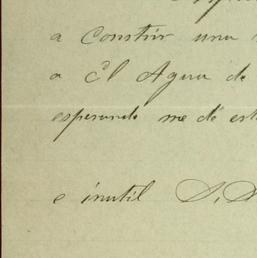 a Constrir una
a El Agua de
esperando me dé est
e inutil S. S